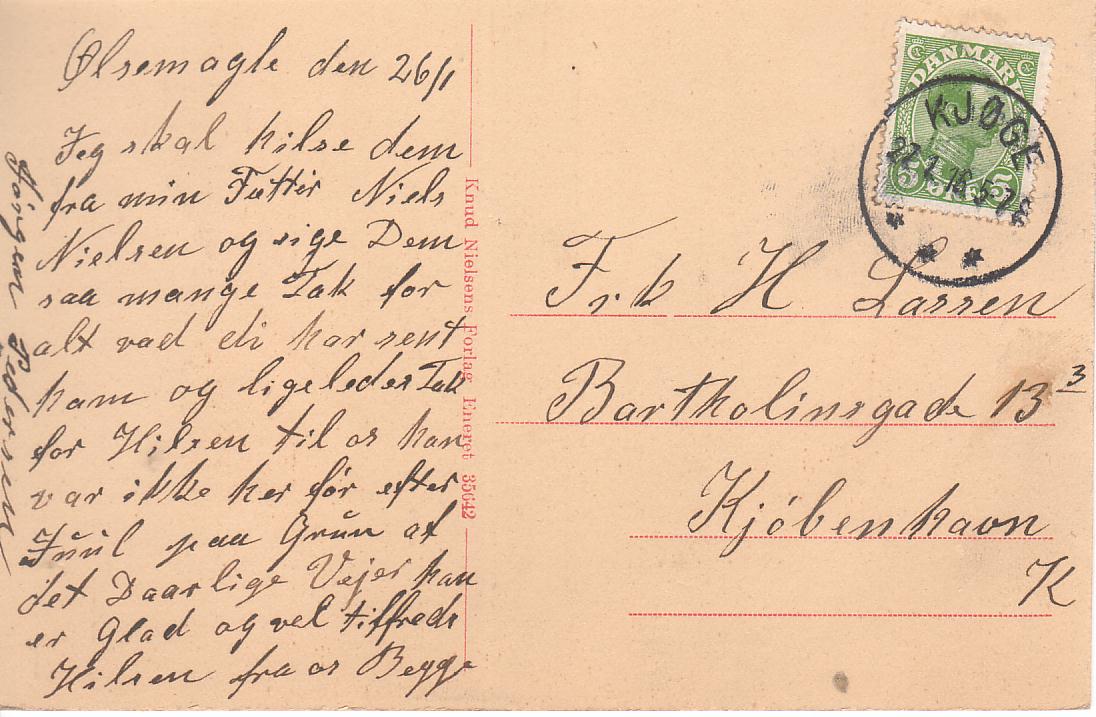 Ølsemagle den 26/1
Jeg skal hilse dem
fra min Fætter Niels
Nielsen og sige Dem
saa mange Tak for
alt vad di har sent
ham og ligeledes Tak
for Hilsen til os han
var ikke her før efter
Juul paa Grun af
det Daarlige Vejer han
er Glad og vel tilfreds
Hilsen fra os Begge
Jörgen Pedersen
Knud Nielsens Forlag Eneret 35642
DANMARK
5 ØRE 5
KJØGE
Frk H Lassen
Bartholinsgade 13 3
Kjöbenhavn
K